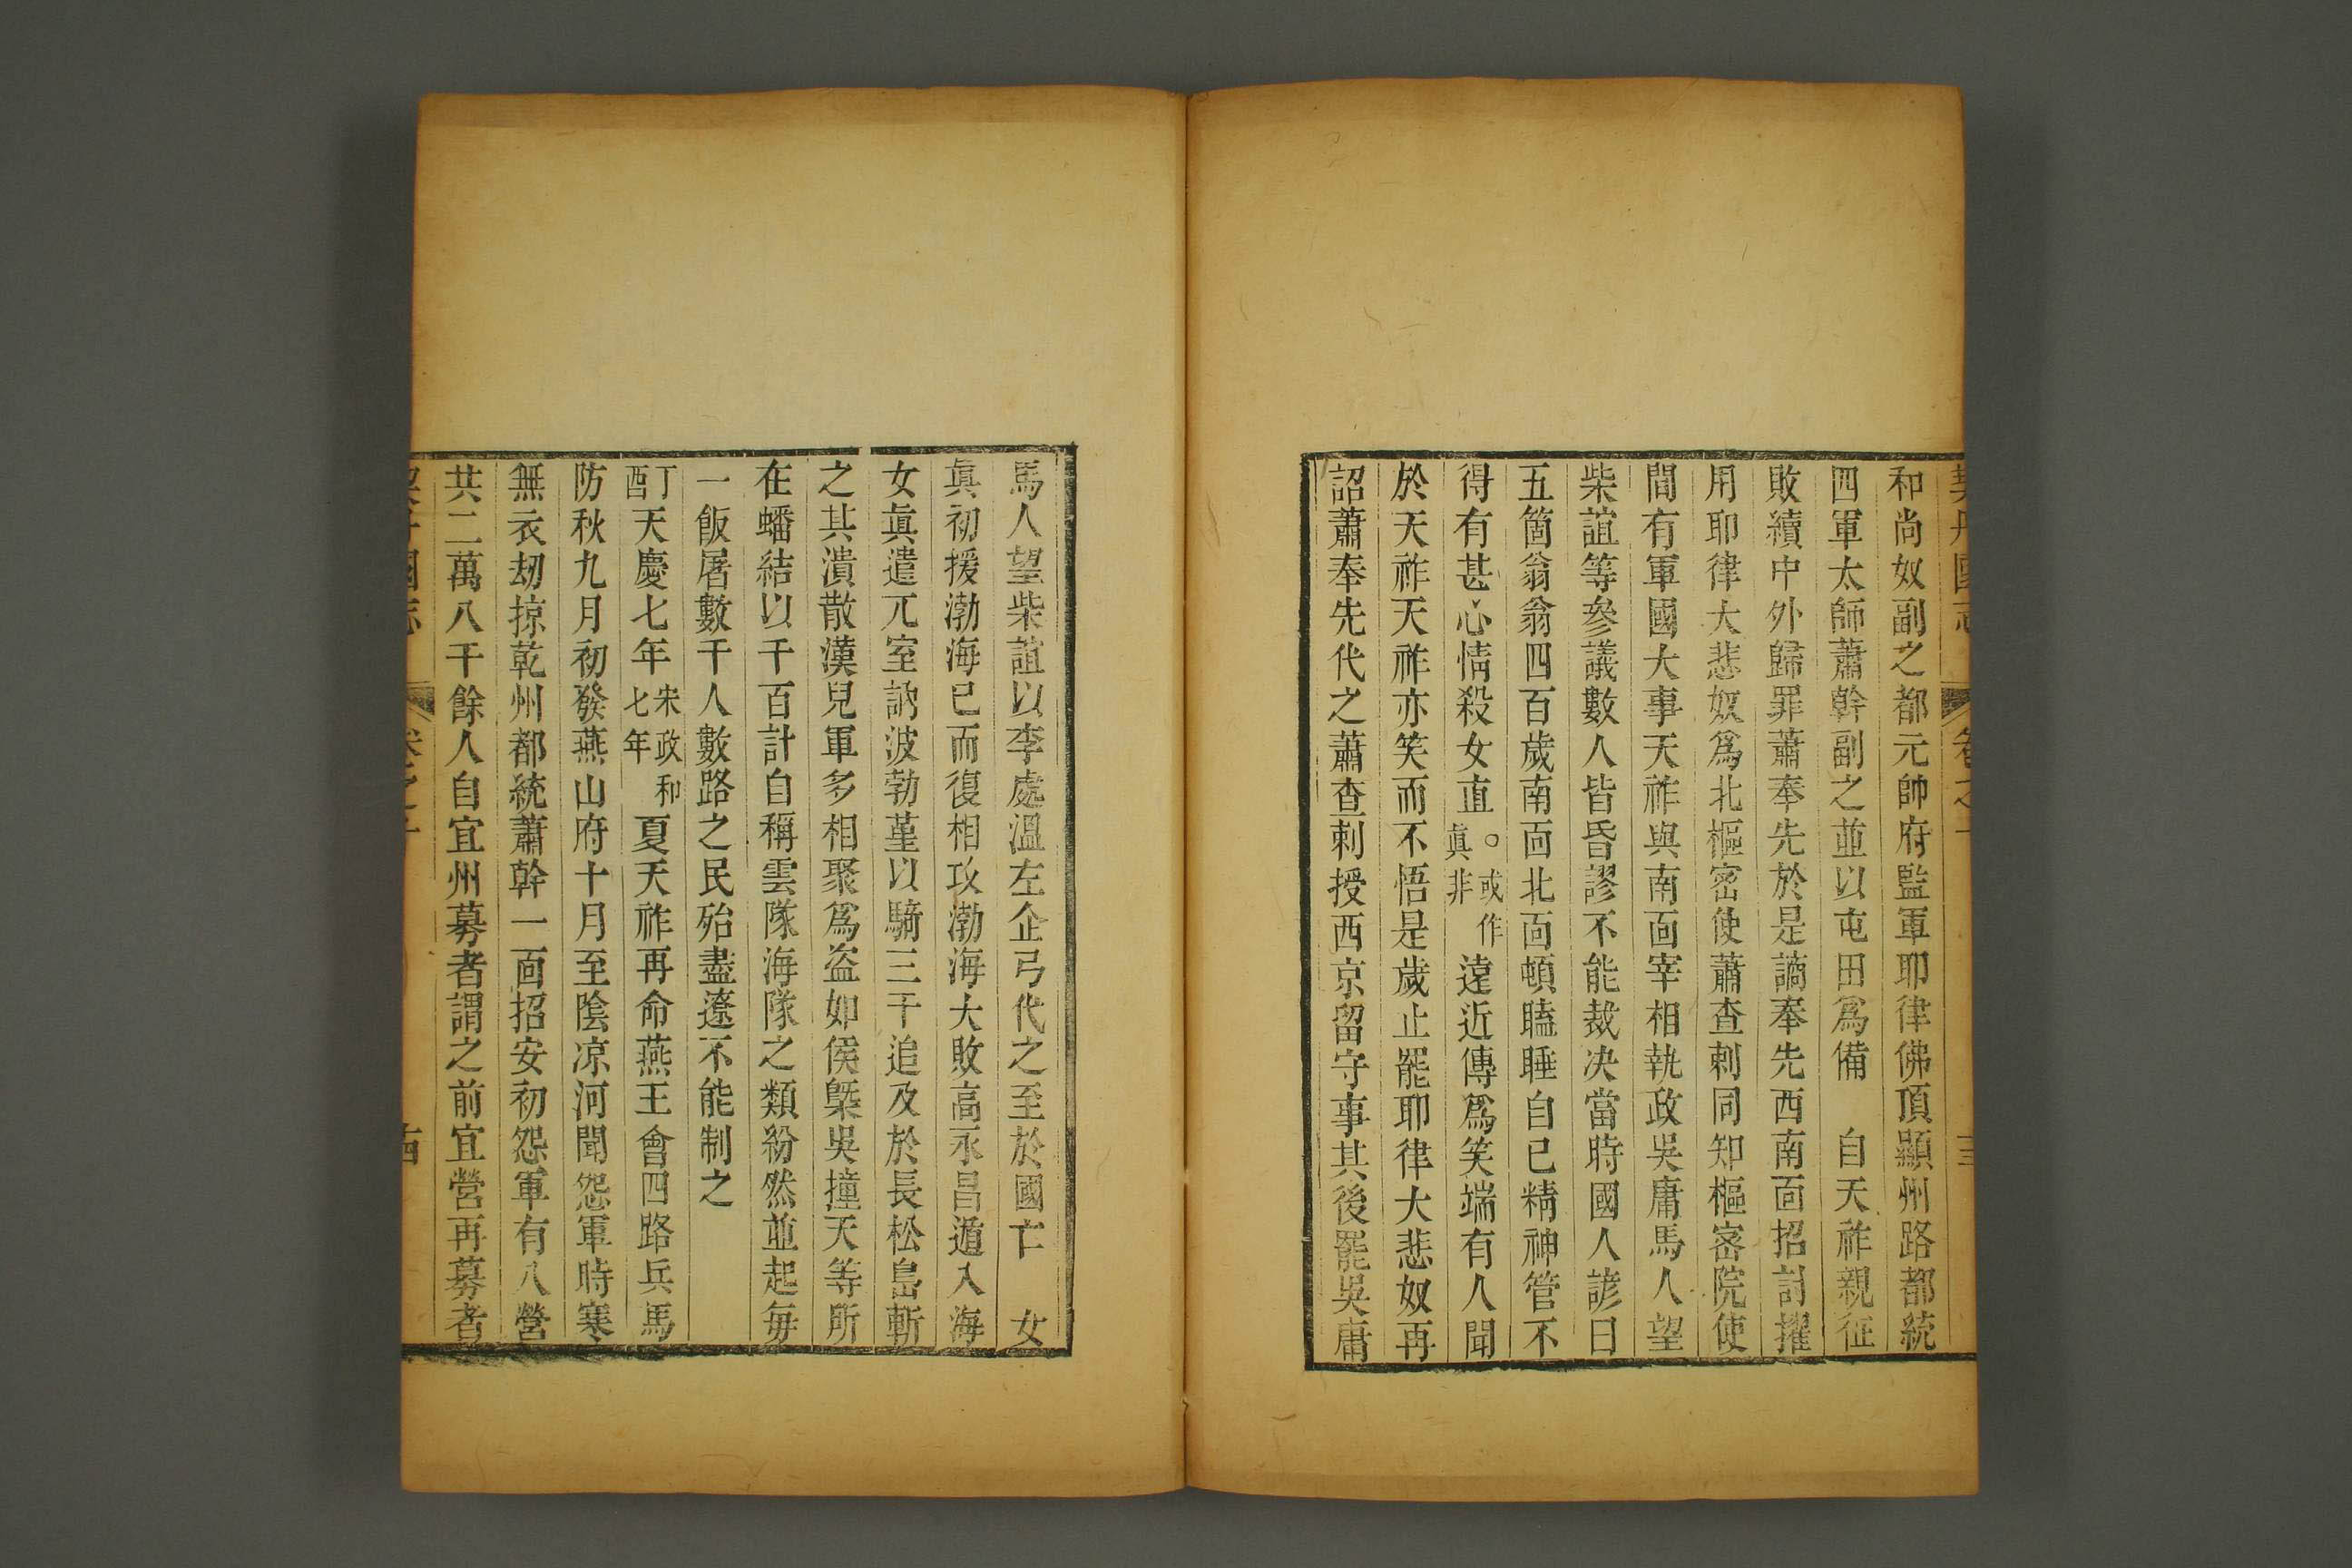 契丹國志 卷之十 三
和尚奴副之都元帥府監軍耶律佛頂顯州路都統
四軍太師蕭幹副之並以屯田爲備　自天祚親征
敗績中外歸罪蕭奉先於是謫奉先西南面招討擢
用耶律大悲奴爲北樞密使蕭查剌同知樞密院使
間有軍國大事天祚與南面宰相執政吳庸馬人望
柴誼等參議數人皆昏謬不能裁决當時國人諺曰
五箇翁翁四百歲南面北面頓瞌睡自已精神管不
得有甚心情殺女直○或作眞非遠近傳爲笑端有人聞
於天祚天祚亦笑而不悟是歲止罷耶律大悲奴再
詔蕭奉先代之蕭查剌授西京留守事其後罷吳庸
馬人望柴誼以李處溫左企弓代之至於國亡　女
眞初援渤海已而復相攻渤海大敗高永昌遁入海
女眞遣兀室訥波勃堇以騎三千追及於長松島斬
之其潰散漢兒軍多相聚爲盗如侯槩吳撞天等所
在蟠結以千百計自稱雲隊海隊之類紛然並起每
一飯屠數千人數路之民殆盡遼不能制之
丁酉天慶七年宋政和七年夏天祚再命燕王會四路兵馬
防秋九月初發燕山府十月至陰凉河聞怨軍時寒
無衣刼掠乾州都統蕭幹一面招安初怨軍有八營
共二萬八千餘人自宜州募者謂之前宜營再募者
國志 卷之十